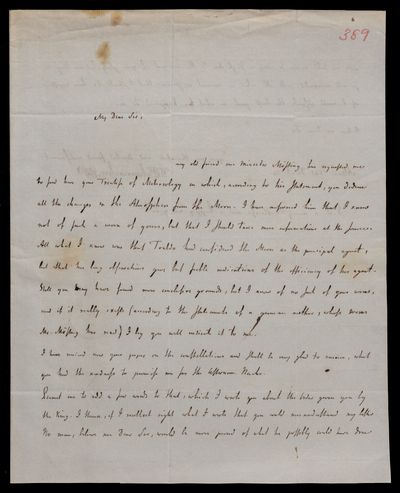 389
My Dear Sir,
my old friend our minister Mösting has requested me
to find here your Treatise of Meteorology in which, according to his Statement, you deduce
all the changes in the Atmosphere from the Moon. I have informed him that I know
not of such a work of yours, but that I should take more informations at the source.
All what I know was that Toaldo had considered the Moon as the principal agent,
but that his long observations gave but feeble indications of the efficiency of his agent.
Still you may have found more conclusive grounds, but I know of no such of your works,
and if it really exists (according to the Statements of a german author, whose works
Mr. Mösting has read) I beg you will indicate it to me.
I have received now your paper on the constellations and shall be very glad to receive, what
you had the kindness to promise me for the Astronom. Nachr.
Permit me to add a few words to that, which I wrote you about the order given you by
the King. I think, if I recollect right what I wrote that you could misunderstand my letter
No man, believe me Dear Sir, would be more proud of what he possibly could have done